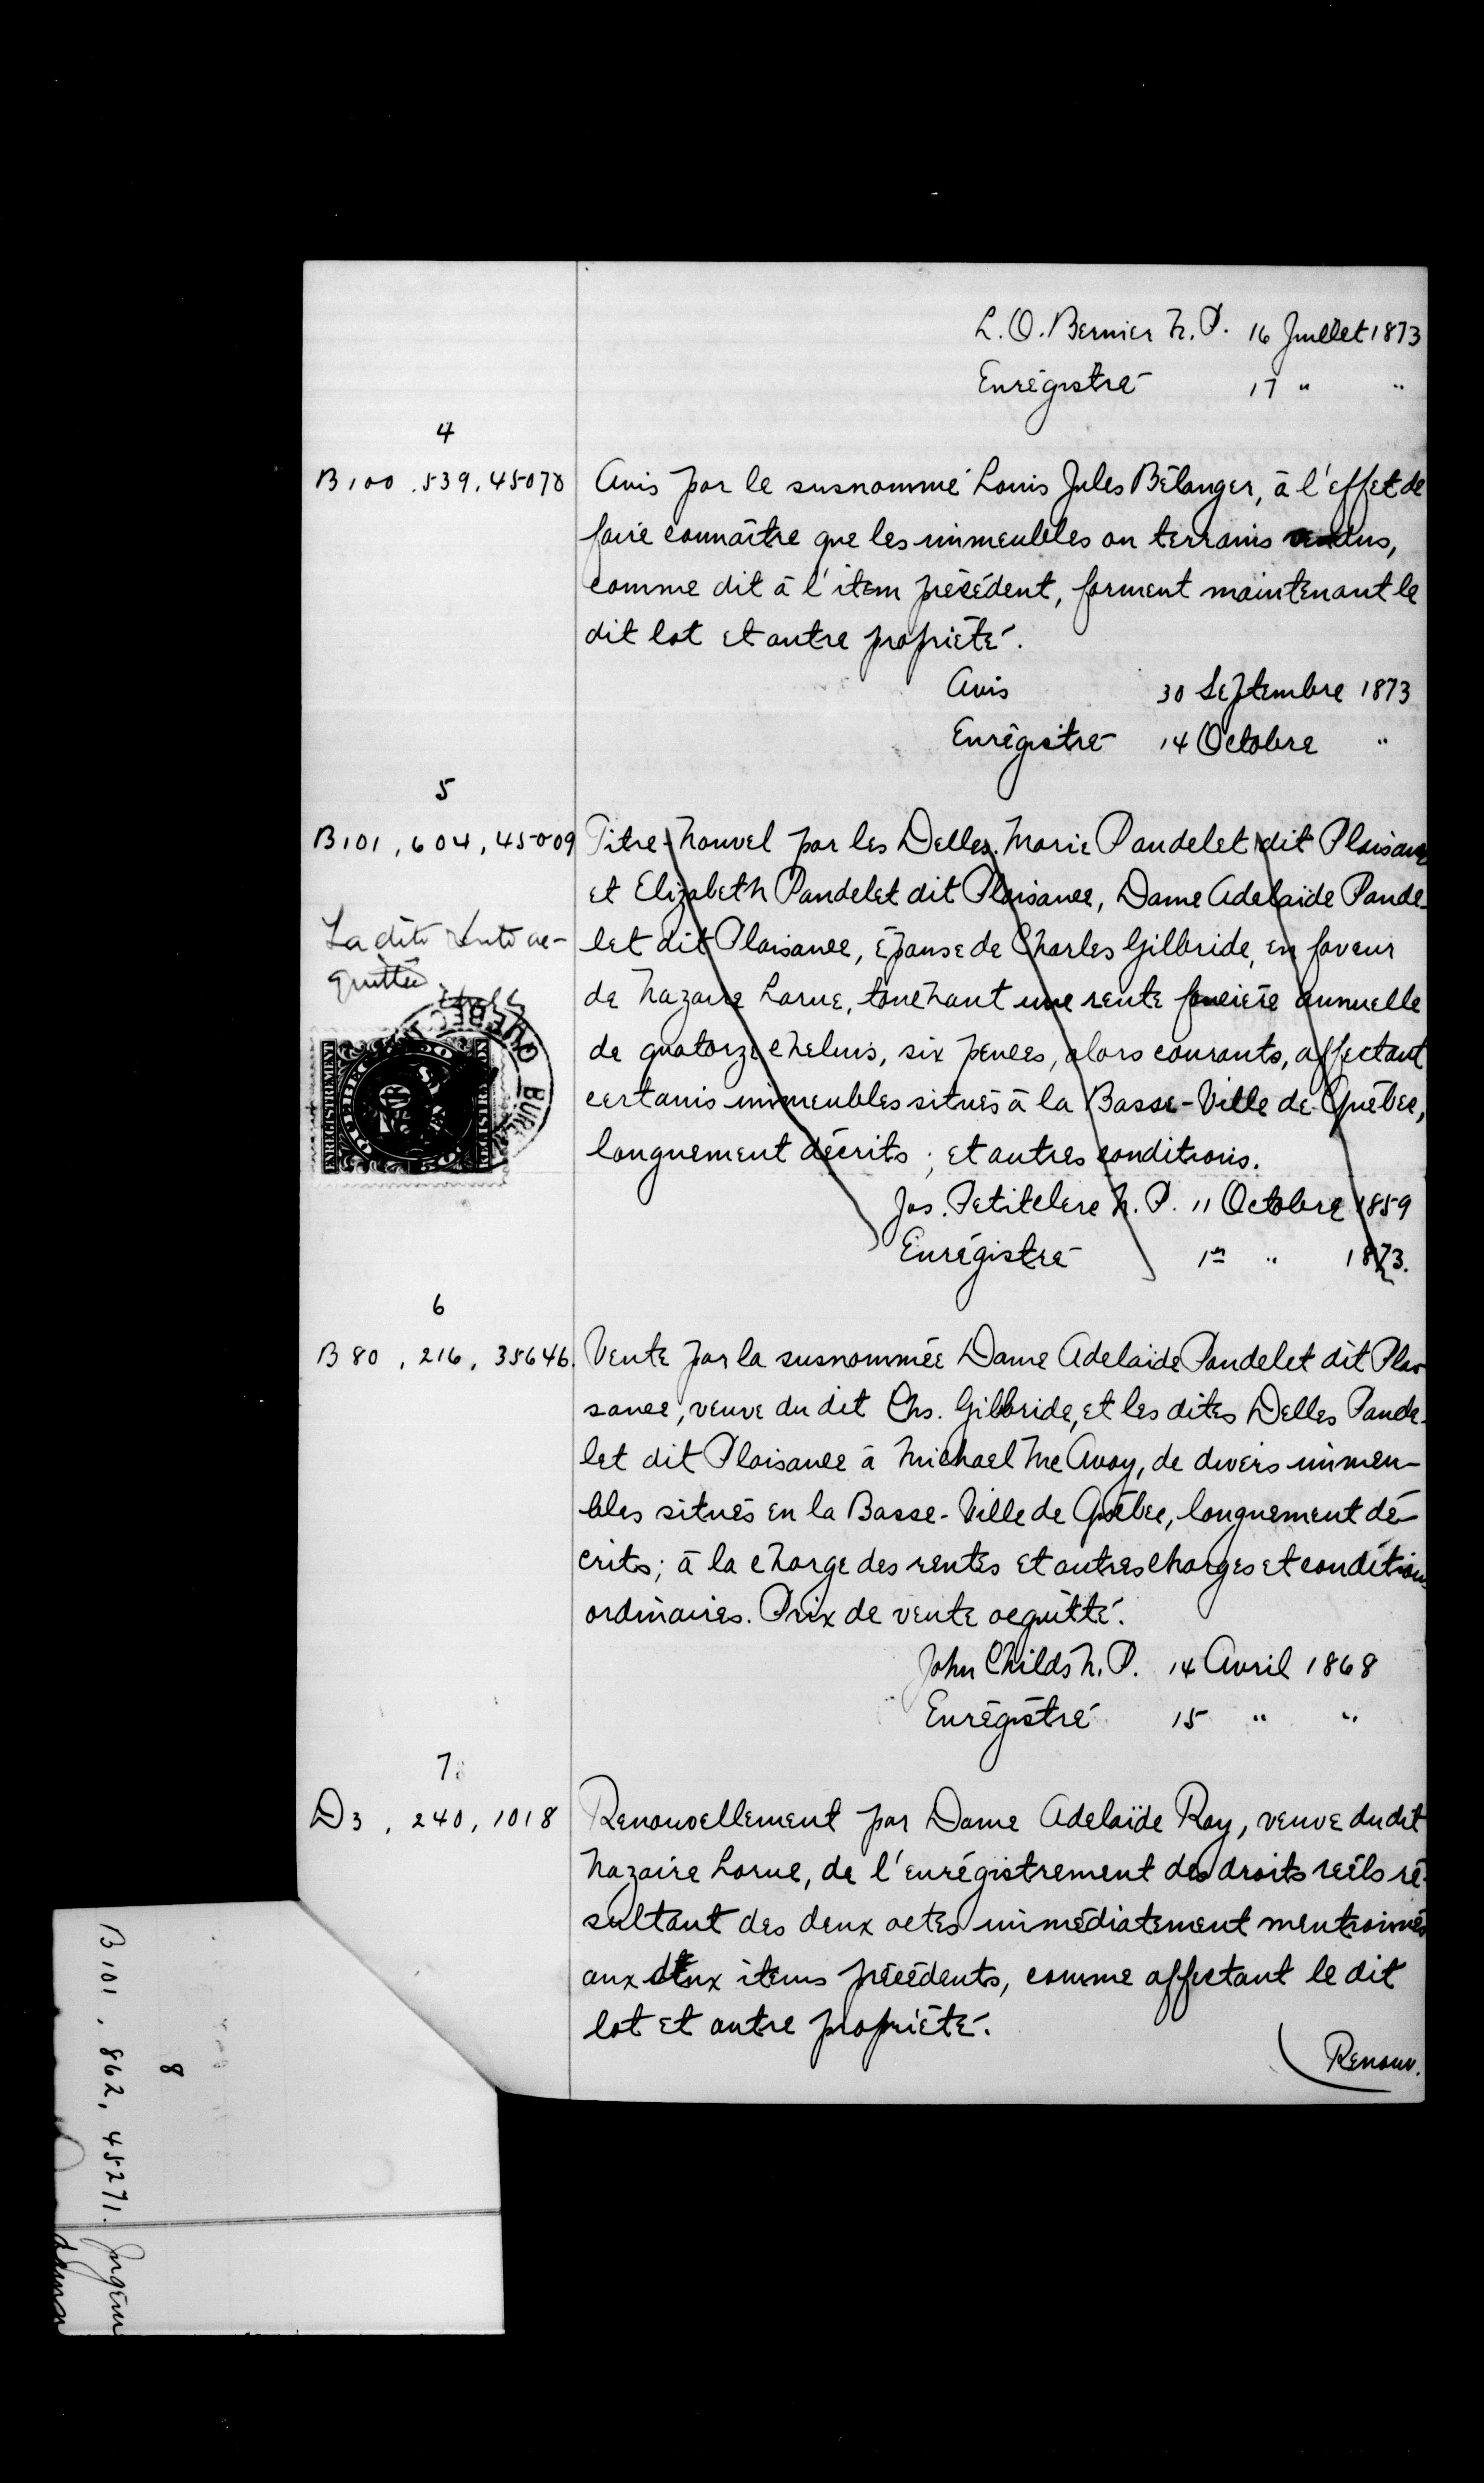 L. O. Bernier N. P. 16 Juillet 1873
Enrégistré 17 " "
4
B 100, 539, 45078
Avis par le susnommé Louis Jules Bélanger, à l'effet de
faire connaître que les immeubles ou terrains vendus,
comme dit à l'item précédent, forment maintenant le
dit lot et autre propriété.
Avis 30 Septembre 1873
Enrégistré 14 Octobre "
5
B 101, 604, 45009
La dite rente ac-
quittée
Titre-Nouvel par les Delles. Marie Pandelet dit Plaisance
et Elizabeth Pandelet dit Plaisance, Dame Adelaïde Pande-
let dit Plaisance, épouse de Charles Gilbride, en faveur
de Nazaire Larue, touchant une rente foncière annuelle
de quatorze chelins, six pences, alors courants, affectant
certains immeubles situés à la Basse-Ville de Québec,
longuement décrits; et autres conditions.
Jos. Petitclerc N. P. 11 Octobre 1859
Enrégistré 1er " 1873.
ENREGISTREMENT
QUEBEC
6
B 80, 216, 35646.
Vente par la susnommée Dame Adelaïde Pandelet dit Plai
sance, veuve du dit Chs. Gilbride, et les dites Delles Pande-
let dit Plaisance à Michael McAvoy, de divers immeu-
bles situés en la Basse-Ville de Québec, longuement dé-
crits; à la charge des rentes et autres charges et conditions
ordinaires. Prix de vente acquitté.
John Childs N. P. 14 Avril 1868
Enrégistré 15 " "
7
D 3, 240, 1018
Renouvellement par Dame Adelaïde Roy, veuve du dit
Nazaire Larue, de l'enrégistrement des droits réels ré-
sultant des deux actes immédiatement mentionnés
aux deux items précédents, comme affectant le dit
lot et autre propriété.
Renouv.
8
B 101, 862, 45271.
Jugem